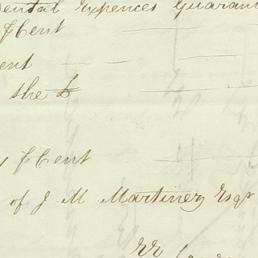 dental Expences Guarant
⅌ Cent
ent
the £
⅌ Cent
of J M Martinez Esqr